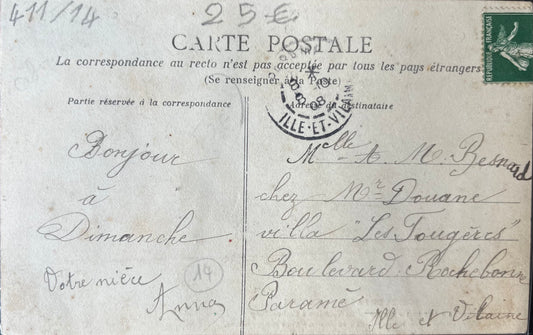 411/14
25€
CARTE POSTALE
La correspondance au recto n'est pas acceptée par tous les pays étrangers
(Se renseigner à la Poste)
REPUBLIQUE FRANÇAISE
ILLE-ET-VILAINE
Partie réservée à la correspondance
Adresse du destinataire
Bonjour
à
Dimanche
Votre nièce
Anna
14
Melle A. M. Besnard
chez Mr Douane
villa "Les Fougères"
Boulevard Rochebonne
Paramé
Ille et Vilaine